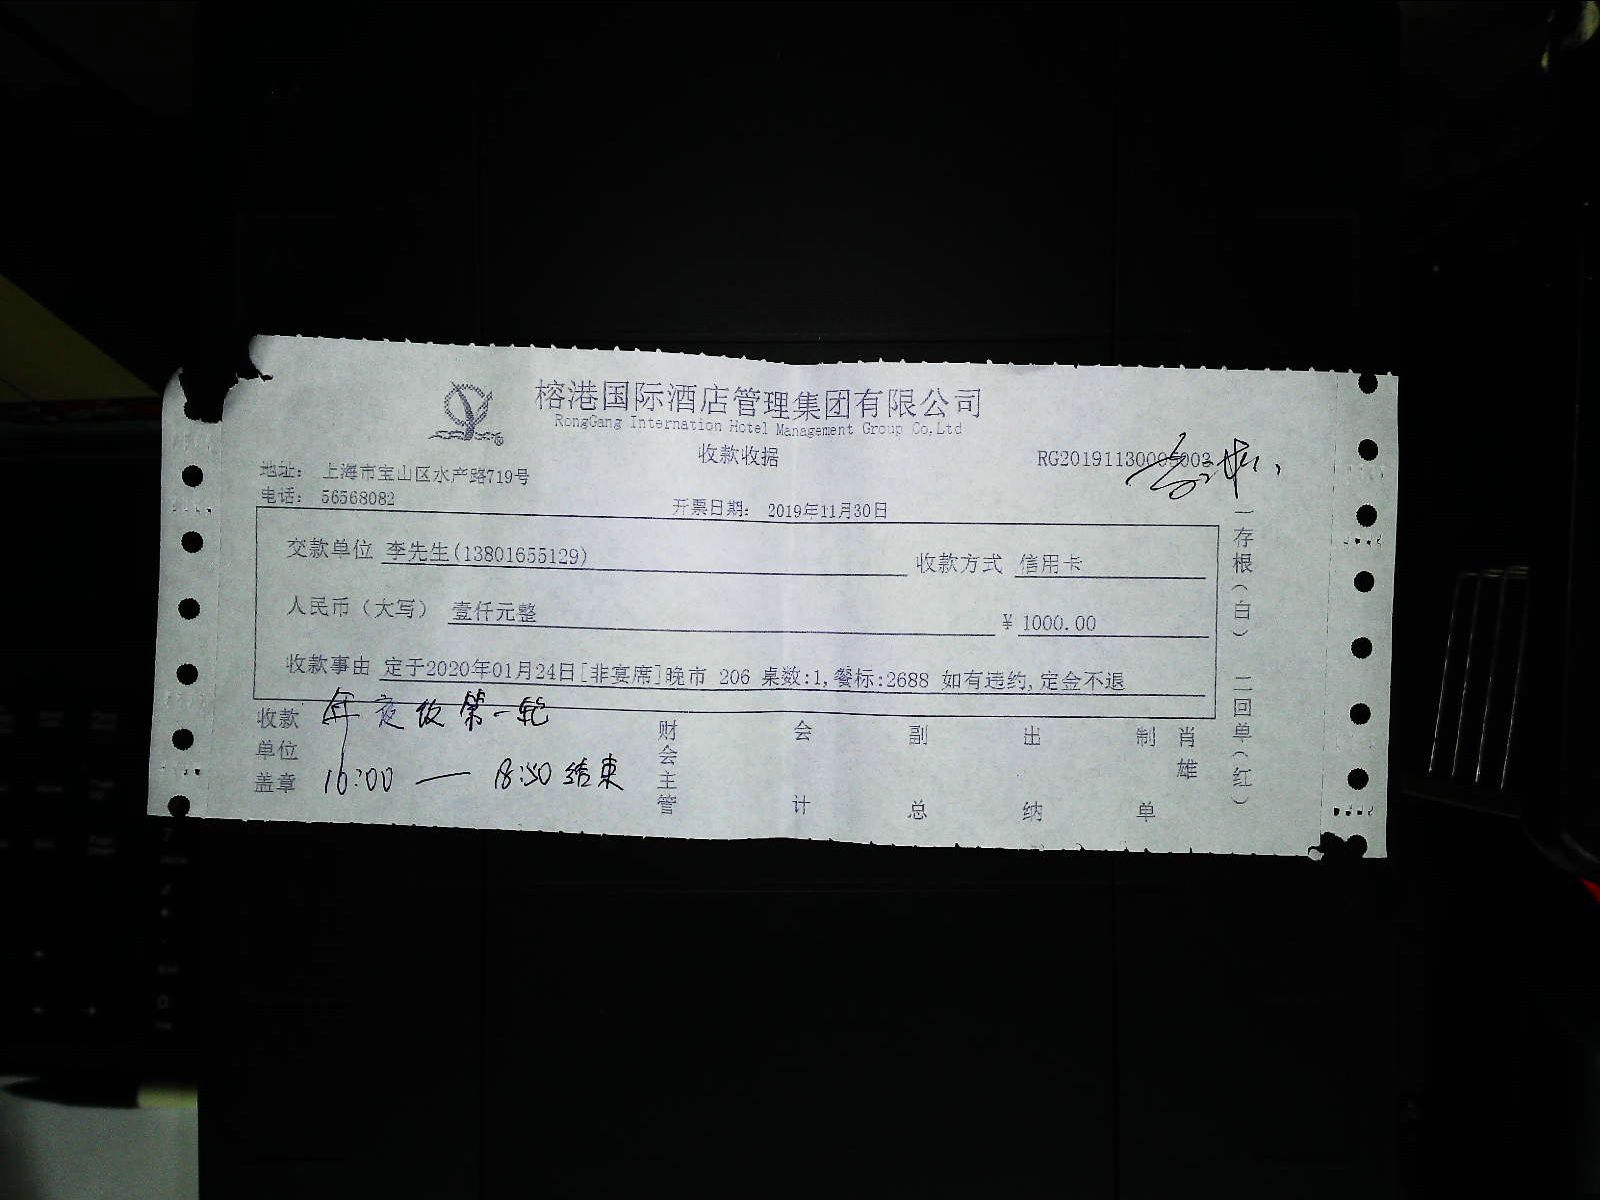 榕港国际酒店管理集团有限公司
RongGang Internation Hotel Management Group Co,Ltd
收款收据
地址： 上海市宝山区水产路719号
电话： 56568082
开票日期： 2019年11月30日
交款单位 李先生(13801655129) 收款方式 信用卡
人民币（大写） 壹仟元整 ¥ 1000.00
收款事由 定于2020年01月24日[非宴席]晚市 206 桌数:1,餐标:2688 如有违约,定金不退
年夜饭第一轮
16:00 — 18:30 结束
收款单位盖章
财会主管
会计
副总
出纳
制单
肖雄
一存根（白） 二回单（红）